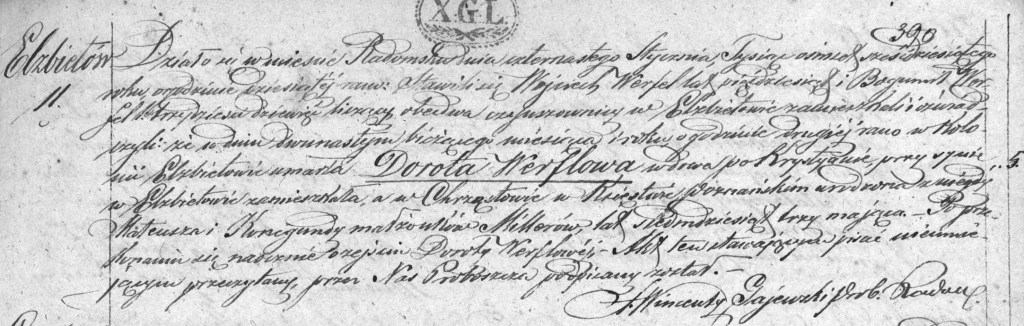 X.G.L
390
Elżbietów
11.
Działo się w mieście Radomsku dnia czternastego Stycznia, Tysiąc ośmset sześćdziesiątego
roku, o godzinie dziesiątej rano: Stawili się Wojciech Werfel lat pięćdziesiąt i Bogumił Wer-
fel lat trzydzieści dziewięć liczący obydwa czynszownicy w Elżbietowie zamieszkali i oświad-
czyli: że w dniu dwunastym bieżącego miesiąca i roku o godzinie drugiej rano w Kolo-
nii Elżbietowie umarła Dorota Werflowa wdowa po Krystyanie, przy synie
w Elżbietowie zamieszkała, a w Chrząstowie w Księstwie Poznańskim urodzona z niegdy
Mateusza i Kunegundy małżonków Millerów, lat siedmdziesiąt trzy mająca. — Po prze-
konaniu się naocznie o zejściu Doroty Werflowéj, Akt ten stawającym pisać nieumie-
jącym przeczytany, przez Nas Proboszcza podpisany został. —
X. Wincenty Gajewski Prob. Radom.
5.